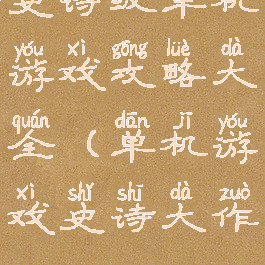 史诗级单机
yóu xì gōng lüè dà
游戏攻略大
quán dān jī yóu
全（单机游
xì shǐ shī dà zuò
戏史诗大作